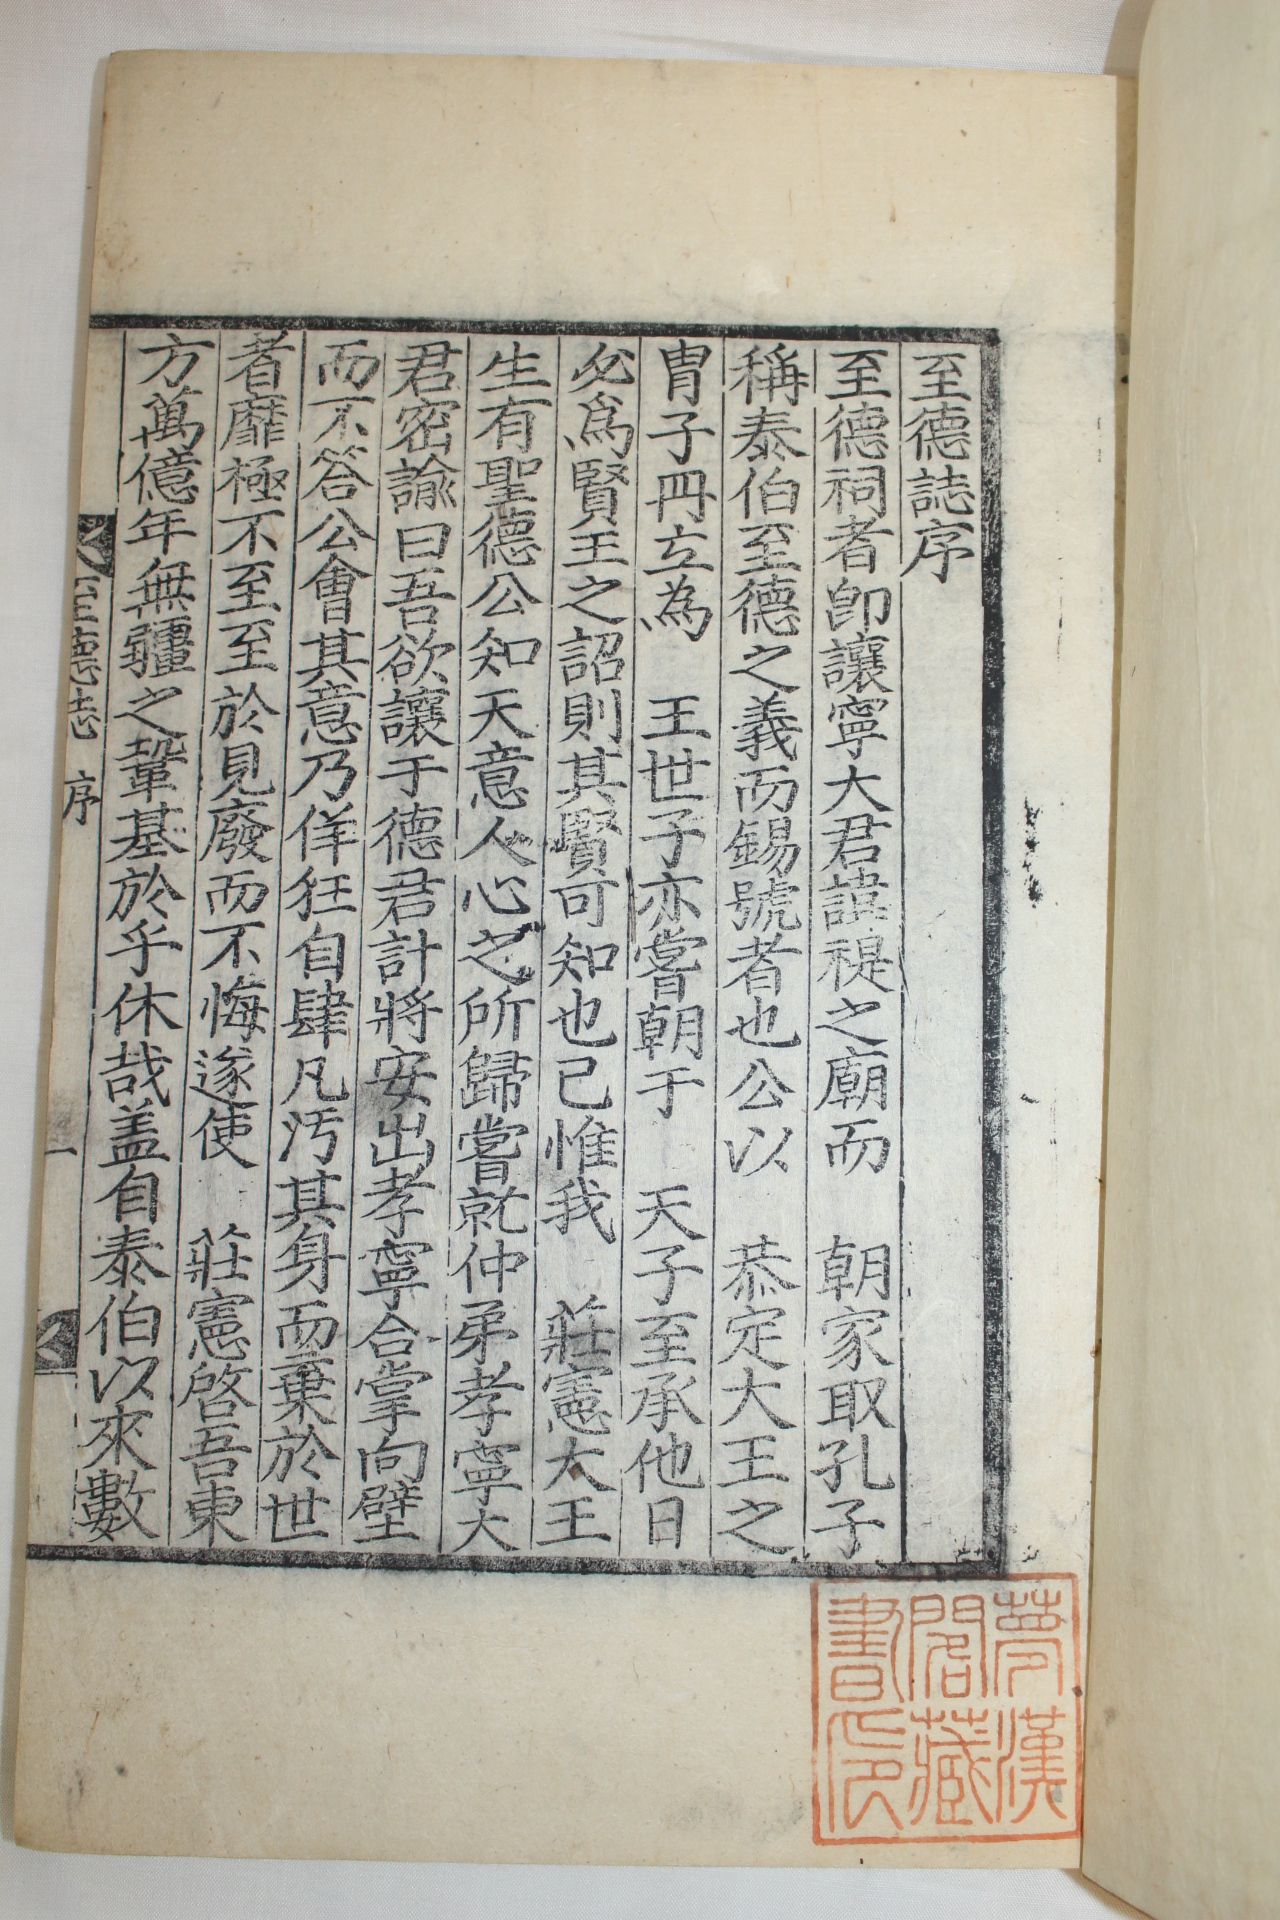 至德誌序
至德祠者卽讓寧大君諱禔之廟而　朝家取孔子
稱泰伯至德之義而錫號者也公以　恭定大王之
胄子冊立為　王世子亦嘗朝于　天子至承他日
必爲賢王之詔則其賢可知也已惟我　莊憲大王
生有聖德公知天意人心之所歸嘗就仲弟孝寧大
君密諭曰吾欲讓于德君計將安出孝寧合掌向壁
而不答公會其意乃佯狂自肆凡汚其身而棄於世
者靡極不至至於見廢而不悔遂使　莊憲啓吾東
方萬億年無疆之鞏基於乎休哉盖自泰伯以來數
至德志　序　一
夢漢
閣藏
書印